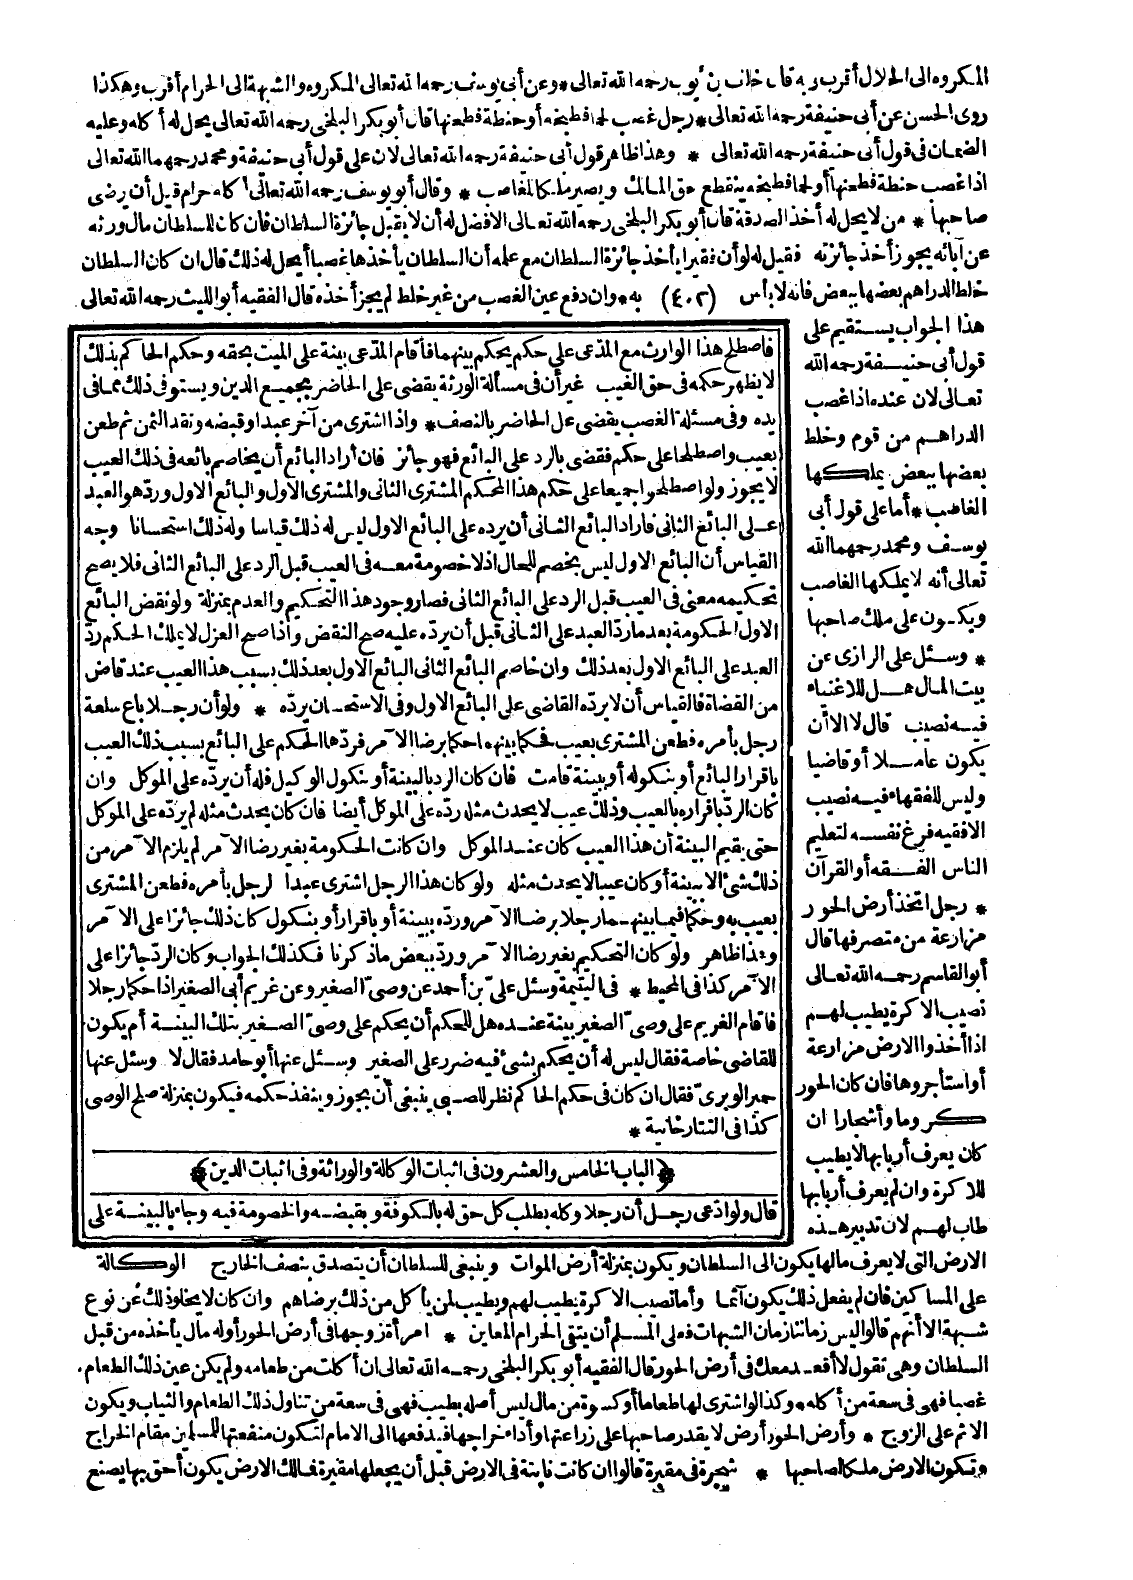 المكروه الى الحلال أقرب وبه قال خلف بن أيوب رحمه الله تعالى * وعن أبي يوسف رحمه الله تعالى المكروه والشبهة الى الحرام أقرب وهكذا
روى الحسن عن أبي حنيفة رحمه الله تعالى * رجل غصب لحما فطبخه أو حنطة فطحنها قال أبو بكر البلخي رحمه الله تعالى يحل له أكله وعليه
الضمان في قول أبي حنيفة رحمه الله تعالى * وهذا ظاهر قول أبي حنيفة رحمه الله تعالى لان على قول أبي حنيفة ومحمد رحمهما الله تعالى
اذا غصب حنطة فطحنها أو لحما فطبخه ينقطع حق المالك ويصير ملكا للغاصب * وقال أبو يوسف رحمه الله تعالى أكله حرام قبل أن يرضى
صاحبها * من لا يحل له أخذ الصدقة قال أبو بكر البلخي رحمه الله تعالى الافضل له أن لا يقبل جائزة السلطان فان كان للسلطان مال ورثه
عن آبائه يجوز أخذ جائزته فقيل له لو أن فقيرا يأخذ جائزة السلطان مع علمه أن السلطان يأخذها غصبا أيحل له ذلك قال ان كان السلطان
خلط الدراهم بعضها ببعض فانه لا بأس (٤٠٢) به * وان دفع عين الغصب من غير خلط لم يجز أخذه قال الفقيه أبو الليث رحمه الله تعالى
هذا الجواب يستقيم على
قول أبي حنيفة رحمه الله
تعالى لان عنده اذا غصب
الدراهم من قوم وخلط
بعضها ببعض يملكها
الغاصب * أما على قول أبي
يوسف ومحمد رحمهما الله
تعالى أنه لا يملكها الغاصب
ويكون على ملك صاحبها
* وسئل على الرازي عن
بيت المال هل للاغنياء
فيه نصيب قال لا الا أن
يكون عاملا أو قاضيا
وليس للفقهاء فيه نصيب
الا فقيه فرغ نفسه لتعليم
الناس الفقه أو القرآن
* رجل اتخذ أرض الحور
مزارعة من متصرفها قال
أبو القاسم رحمه الله تعالى
نصيب الاكرة يطيب لهم
اذا أخذوا الارض مزارعة
أو استأجروها فان كان الحور
كروما وأشجارا ان
كان يعرف أربابها لا يطيب
للاكرة وان لم يعرف أربابها
طاب لهم لان تدبير هذه
فاصطلح هذا الوارث مع المدعى على حكم يحكم بينهما فأقام المدعى بينة على الميت بحقه وحكم الحاكم بذلك
لا يظهر حكمه في حق الغيب غير أن في مسألة الورثة يقضى على الحاضر بجميع الدين ويستوفى ذلك مما في
يده وفى مسئلة الغصب يقضى على الحاضر بالنصف * واذا اشترى من آخر عبدا وقبضه ونقد الثمن ثم طعن
بعيب واصطلحا على حكم فقضى بالرد على البائع فهو جائز فان أراد البائع أن يخاصم بائعه في ذلك العيب
لا يجوز ولو اصطلحوا جميعا على حكم هذا المحكم المشترى الثانى والمشترى الاول والبائع الاول ورد هو العبد
على البائع الثانى فأراد البائع الثانى أن يرده على البائع الاول ليس له ذلك قياسا وله ذلك استحسانا وجه
القياس أن البائع الاول ليس بخصم للحال اذ لا خصومة معه في العيب قبل الرد على البائع الثانى فلا يصح
تحكيمه معنى في العيب قبل الرد على البائع الثانى فصار وجود هذا التحكيم والعدم بمنزلة ولو نقض البائع
الاول الحكومة بعد ما رد العبد على الثانى قبل أن يرده عليه صح النقض واذا صح العزل لا يملك الحكم رد
العبد على البائع الاول بعد ذلك وان خاصم البائع الثانى البائع الاول بعد ذلك بسبب هذا العيب عند قاض
من القضاة فالقياس أن لا يرده القاضى على البائع الاول وفى الاستحسان يرده * ولو أن رجلا باع سلعة
رجل بأمره فطعن المشترى بعيب فحكما بينهما حكما برضا الآمر فردها الحكم على البائع بسبب ذلك العيب
باقرار البائع أو بنكوله أو ببينة قامت فان كان الرد بالبينة أو بنكول الوكيل فله أن يرده على الموكل وان
كان الرد باقراره بالعيب وذلك عيب لا يحدث مثله رده على الموكل أيضا فان كان يحدث مثله لم يرده على الموكل
حتى يقيم البينة أن هذا العيب كان عند الموكل وان كانت الحكومة بغير رضا الآمر لم يلزم الآمر من
ذلك شئ الا ببينة أو كان عيبا لا يحدث مثله ولو كان هذا الرجل اشترى عبدا لرجل بأمره فطعن المشترى
بعيب به وحكما فيما بينهما رجلا برضا الآمر ورده ببينة أو باقرار أو بنكول كان ذلك جائزا على الآمر
وهذا ظاهر ولو كان التحكيم بغير رضا الآمر ورد ببعض ما ذكرنا فكذلك الجواب وكان الرد جائزا على
الآمر كذا في المحيط * فى اليتيمة وسئل على بن أحمد عن وصى الصغير وعن غريم أبى الصغير اذا حكما رجلا
فأقام الغريم على وصى الصغير بينة عنده هل للحكم أن يحكم على وصى الصغير بتلك البينة أم يكون
للقاضى خاصة فقال ليس له أن يحكم بشئ فيه ضرر على الصغير وسئل عنها أبو حامد فقال لا وسئل عنها
حمير الوبرى فقال ان كان في حكم الحاكم نظر للصبى ينبغى أن يجوز وينفذ حكمه فيكون بمنزلة صلح الوصى
كذا فى التتارخانية *
﴿الباب الخامس والعشرون فى اثبات الوكالة والوراثة وفى اثبات الدين﴾
قال ولو ادعى رجل أن رجلا وكله بطلب كل حق له بالكوفة وبقبضه والخصومة فيه وجاء بالبينة على
الوكالة
الارض التى لا يعرف مالكها يكون الى السلطان ويكون بمنزلة أرض الموات وينبغى للسلطان أن يتصدق بنصف الخارج
على المساكين فان لم يفعل ذلك يكون آثما وأما نصيب الاكرة يطيب لهم ويطيب لمن يأكل من ذلك برضاهم وان كان لا يخلو ذلك عن نوع
شبهة الا أنهم قالوا ليس زماننا زمان الشبهات فعلى المسلم أن يتقى الحرام المعاين * امرأة زوجها فى أرض الحور أوله مال يأخذه من قبل
السلطان وهى تقول لا أقعد معك فى أرض الحور قال الفقيه أبو بكر البلخى رحمه الله تعالى ان أكلت من طعامه ولم يكن عين ذلك الطعام
غصبا فهى فى سعة من أكله وكذا لو اشترى لها طعاما أو كسوة من مال ليس أصله بطيب فهى فى سعة من تناول ذلك الطعام والثياب ويكون
الاثم على الزوج * وأرض الحور أرض لا يقدر صاحبها على زراعتها وأداء خراجها فيدفعها الى الامام لتكون منفعتها للمسلمين مقام الخراج
وتكون الارض ملكا لصاحبها * شجرة فى مقبرة قالوا ان كانت نابتة فى الارض قبل أن يجعلها مقبرة فمالك الارض يكون أحق بها يصنع